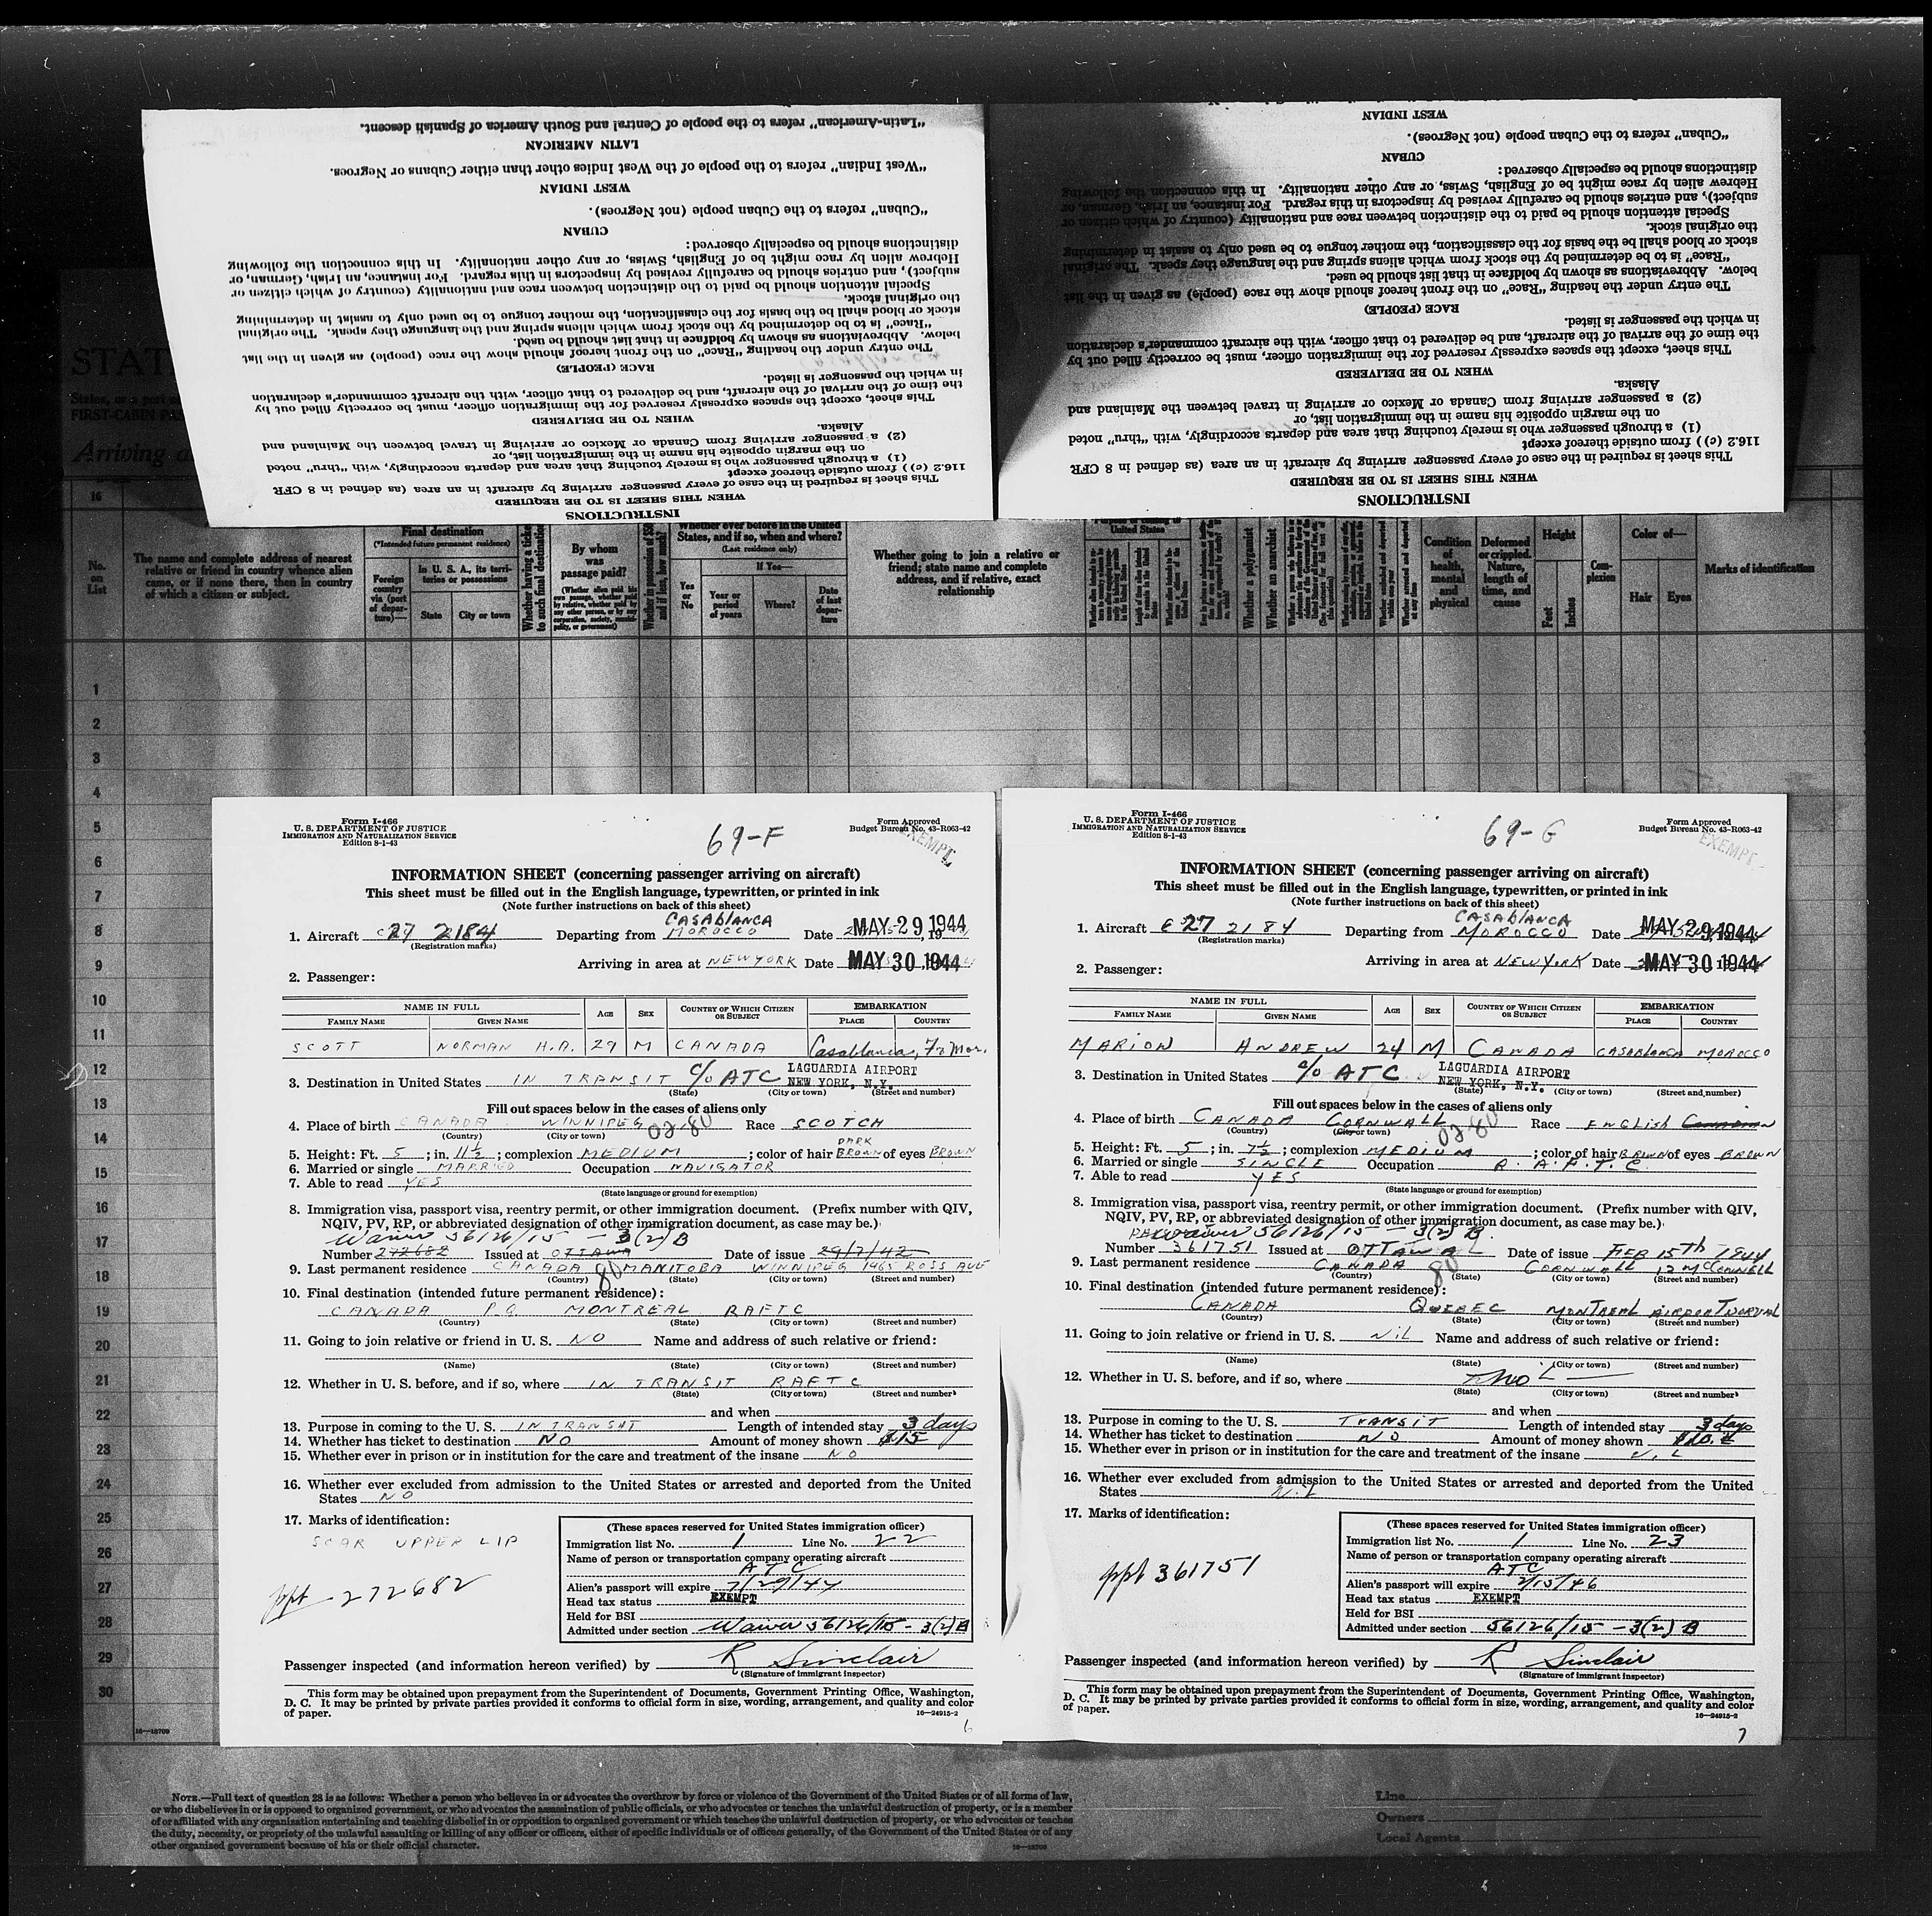 "Latin-American" refers to the people of Central and South America of Spanish descent.
LATIN AMERICAN
"West Indian" refers to the people of the West Indies other than either Cubans or Negroes.
WEST INDIAN
"Cuban" refers to the Cuban people (not Negroes).
CUBAN
distinctions should be especially observed:
Hebrew alien by race might be of English, Swiss, or any other nationality. In this connection the following
subject), and entries should be carefully revised by inspectors in this regard. For instance, an Irish, German, or
Special attention should be paid to the distinction between race and nationality (country of which citizen or
the original stock.
stock or blood shall be the basis for the classification, the mother tongue to be used only to assist in determining
"Race" is to be determined by the stock from which aliens spring and the language they speak. The original
below. Abbreviations as shown by boldface in that list should be used.
The entry under the heading "Race" on the front hereof should show the race (people) as given in the list
RACE (PEOPLE)
in which the passenger is listed.
the time of the arrival of the aircraft, and be delivered to that officer, with the aircraft commander's declaration
This sheet, except the spaces expressly reserved for the immigration officer, must be correctly filled out by
WHEN TO BE DELIVERED
Alaska.
(2) a passenger arriving from Canada or Mexico or arriving in travel between the Mainland and
on the margin opposite his name in the immigration list, or
(1) a through passenger who is merely touching that area and departs accordingly, with "thru" noted
116.2 (c)) from outside thereof except
This sheet is required in the case of every passenger arriving by aircraft in an area (as defined in 8 CFR
WHEN THIS SHEET IS TO BE REQUIRED
INSTRUCTIONS
WEST INDIAN
"Cuban" refers to the Cuban people (not Negroes).
CUBAN
distinctions should be especially observed:
Hebrew alien by race might be of English, Swiss, or any other nationality. In this connection the following
subject), and entries should be carefully revised by inspectors in this regard. For instance, an Irish, German, or
Special attention should be paid to the distinction between race and nationality (country of which citizen or
the original stock.
stock or blood shall be the basis for the classification, the mother tongue to be used only to assist in determining
"Race" is to be determined by the stock from which aliens spring and the language they speak. The original
below. Abbreviations as shown by boldface in that list should be used.
The entry under the heading "Race" on the front hereof should show the race (people) as given in the list
RACE (PEOPLE)
in which the passenger is listed.
the time of the arrival of the aircraft, and be delivered to that officer, with the aircraft commander's declaration
This sheet, except the spaces expressly reserved for the immigration officer, must be correctly filled out by
WHEN TO BE DELIVERED
Alaska.
(2) a passenger arriving from Canada or Mexico or arriving in travel between the Mainland and
on the margin opposite his name in the immigration list, or
(1) a through passenger who is merely touching that area and departs accordingly, with "thru" noted
116.2 (c)) from outside thereof except
This sheet is required in the case of every passenger arriving by aircraft in an area (as defined in 8 CFR
WHEN THIS SHEET IS TO BE REQUIRED
INSTRUCTIONS
STAT
FIRST-CABIN PAS
Arriving a
16
No. on List
The name and complete address of nearest relative or friend in country whence alien came, or if none there, then in country of which a citizen or subject.
Final destination
(*Intended future permanent residence)
Foreign country via (port of departure)—
In U. S. A., its territories or possessions
State
City or town
Whether having a ticket to such final destination
By whom was passage paid?
Whether ever before in the United States, and if so, when and where?
(Last residence only)
Yes or No
If Yes—
Year or period of years
Where?
Date of last departure
Whether going to join a relative or friend; state name and complete address, and if relative, exact relationship
United States
Whether a polygamist
Whether an anarchist
Condition of health, mental and physical
Deformed or crippled. Nature, length of time, and cause
Height
Feet
Inches
Complexion
Color of—
Hair
Eyes
Marks of identification
1
2
3
4
5
6
7
8
9
10
11
12
13
14
15
16
17
18
19
20
21
22
23
24
25
26
27
28
29
30
16—18709
Form I-466
U. S. DEPARTMENT OF JUSTICE
IMMIGRATION AND NATURALIZATION SERVICE
Edition 8-1-43
69-F
Form Approved
Budget Bureau No. 43-R063-42
EXEMPT
INFORMATION SHEET (concerning passenger arriving on aircraft)
This sheet must be filled out in the English language, typewritten, or printed in ink
(Note further instructions on back of this sheet)
CASABLANCA
1. Aircraft C 27 2184 Departing from MOROCCO Date MAY 29 1944
(Registration marks)
Arriving in area at NEW YORK Date MAY 30 1944
2. Passenger:
NAME IN FULL AGE SEX COUNTRY OF WHICH CITIZEN OR SUBJECT EMBARKATION
FAMILY NAME GIVEN NAME PLACE COUNTRY
SCOTT NORMAN H.A. 29 M CANADA Casablanca, Fr Mor.
3. Destination in United States IN TRANSIT c/o ATC LAGUARDIA AIRPORT
NEW YORK, N.Y.
(State) (City or town) (Street and number)
Fill out spaces below in the cases of aliens only
4. Place of birth CANADA WINNIPEG 02-80 Race SCOTCH
(Country) (City or town)
DARK
5. Height: Ft. 5; in. 11½; complexion MEDIUM; color of hair BROWN of eyes BROWN
6. Married or single MARRIED Occupation NAVIGATOR
7. Able to read YES
(State language or ground for exemption)
8. Immigration visa, passport visa, reentry permit, or other immigration document. (Prefix number with QIV,
NQIV, PV, RP, or abbreviated designation of other immigration document, as case may be.)
Waiver 56126/15 — 3(2) B
Number 272682 Issued at OTTAWA Date of issue 29/7/42
9. Last permanent residence CANADA 80 MANITOBA WINNIPEG 1465 ROSS AVE
(Country) (State) (City or town) (Street and number)
10. Final destination (intended future permanent residence):
CANADA P.Q. MONTREAL RAFTC
(Country) (State) (City or town) (Street and number)
11. Going to join relative or friend in U. S. NO Name and address of such relative or friend:
(Name) (State) (City or town) (Street and number)
12. Whether in U. S. before, and if so, where IN TRANSIT RAFTC
(State) (City or town) (Street and number)
and when
13. Purpose in coming to the U. S. IN TRANSIT Length of intended stay 3 days
14. Whether has ticket to destination NO Amount of money shown $15
15. Whether ever in prison or in institution for the care and treatment of the insane NO
16. Whether ever excluded from admission to the United States or arrested and deported from the United
States NO
17. Marks of identification:
SCAR UPPER LIP
ppt - 272682
(These spaces reserved for United States immigration officer)
Immigration list No. 1 Line No. 22
Name of person or transportation company operating aircraft
ATC
Alien's passport will expire 7/29/44
Head tax status EXEMPT
Held for BSI
Admitted under section Waiver 56126/15 - 3(2) B
Passenger inspected (and information hereon verified) by R Sinclair
(Signature of immigrant inspector)
This form may be obtained upon prepayment from the Superintendent of Documents, Government Printing Office, Washington,
D. C. It may be printed by private parties provided it conforms to official form in size, wording, arrangement, and quality and color
of paper.
16—24915-2
6
Form I-466
U. S. DEPARTMENT OF JUSTICE
IMMIGRATION AND NATURALIZATION SERVICE
Edition 8-1-43
69-G
Form Approved
Budget Bureau No. 43-R063-42
EXEMPT
INFORMATION SHEET (concerning passenger arriving on aircraft)
This sheet must be filled out in the English language, typewritten, or printed in ink
(Note further instructions on back of this sheet)
CASABLANCA
1. Aircraft C 27 2184 Departing from MOROCCO Date MAY 29 1944
(Registration marks)
Arriving in area at NEW YORK Date MAY 30 1944
2. Passenger:
NAME IN FULL AGE SEX COUNTRY OF WHICH CITIZEN OR SUBJECT EMBARKATION
FAMILY NAME GIVEN NAME PLACE COUNTRY
MARION ANDREW 24 M CANADA CASABLANCA MOROCCO
3. Destination in United States c/o ATC LAGUARDIA AIRPORT
NEW YORK, N.Y.
(State) (City or town) (Street and number)
Fill out spaces below in the cases of aliens only
4. Place of birth CANADA CORNWALL 02-80 Race ENGLISH Canadian
(Country) (City or town)
5. Height: Ft. 5; in. 7½; complexion MEDIUM; color of hair BROWN of eyes BROWN
6. Married or single SINGLE Occupation R.A.F.T.C.
7. Able to read YES
(State language or ground for exemption)
8. Immigration visa, passport visa, reentry permit, or other immigration document. (Prefix number with QIV,
NQIV, PV, RP, or abbreviated designation of other immigration document, as case may be.)
Waiver 56126/15 — 3(2) B.
Number 361751 Issued at OTTAWA Date of issue FEB 15th 1944
9. Last permanent residence CANADA 80 CORNWALL 12 McConnell
(Country) (State) (City or town) (Street and number)
10. Final destination (intended future permanent residence):
CANADA QUEBEC MONTREAL AIRPORT DORVAL
(Country) (State) (City or town) (Street and number)
11. Going to join relative or friend in U. S. NIL Name and address of such relative or friend:
(Name) (State) (City or town) (Street and number)
12. Whether in U. S. before, and if so, where
(State) (City or town) (Street and number)
and when
13. Purpose in coming to the U. S. TRANSIT Length of intended stay 3 days
14. Whether has ticket to destination NO Amount of money shown
15. Whether ever in prison or in institution for the care and treatment of the insane NIL
16. Whether ever excluded from admission to the United States or arrested and deported from the United
States NIL
17. Marks of identification:
ppt 361751
(These spaces reserved for United States immigration officer)
Immigration list No. 1 Line No. 23
Name of person or transportation company operating aircraft
ATC
Alien's passport will expire 2/15/46
Head tax status EXEMPT
Held for BSI
Admitted under section 56126/15 - 3(2) B
Passenger inspected (and information hereon verified) by R Sinclair
(Signature of immigrant inspector)
This form may be obtained upon prepayment from the Superintendent of Documents, Government Printing Office, Washington,
D. C. It may be printed by private parties provided it conforms to official form in size, wording, arrangement, and quality and color
of paper.
16—24915-2
7
NOTE.—Full text of question 28 is as follows: Whether a person who believes in or advocates the overthrow by force or violence of the Government of the United States or of all forms of law,
or who disbelieves in or is opposed to organized government, or who advocates the assassination of public officials, or who advocates or teaches the unlawful destruction of property, or is a member
of or affiliated with any organization entertaining and teaching disbelief in or opposition to organized government or which teaches the unlawful destruction of property, or who advocates or teaches
the duty, necessity, or propriety of the unlawful assaulting or killing of any officer or officers, either of specific individuals or of officers generally, of the Government of the United States or of any
other organized government because of his or their official character.
16—18709
Line
Owners
Local Agents